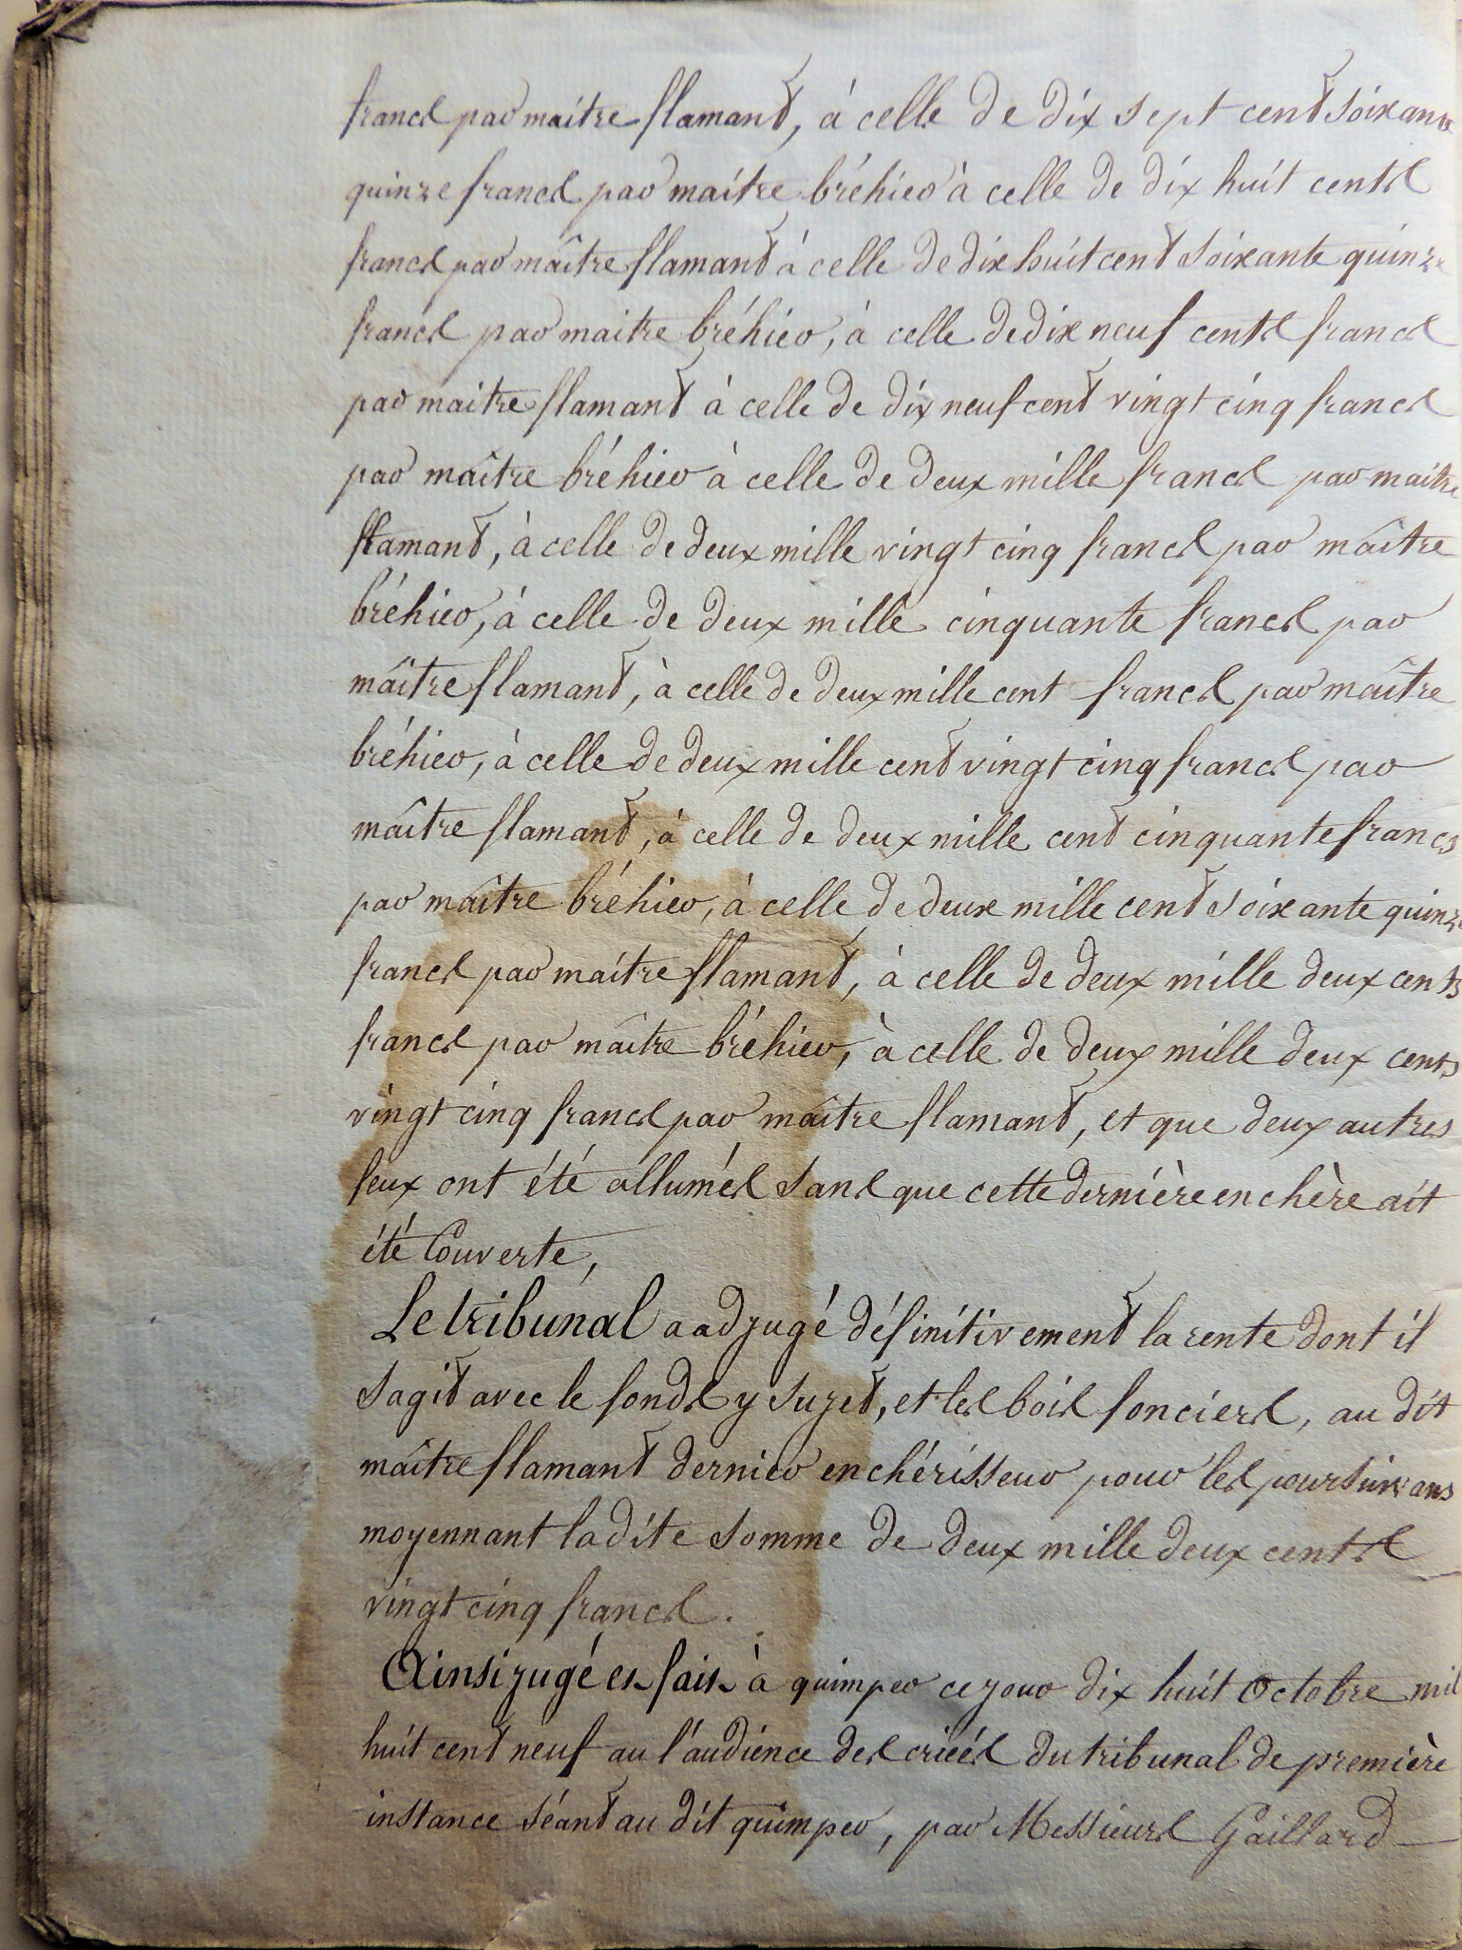 francs par maitre flamant, à celle de dix sept cent soixante
quinze francs par maitre bréhier à celle de dix huit cents
francs par maître flamant à celle de dix huit cent soixante quinze
francs par maitre bréhier, à celle de dix neuf cents francs
par maitre flamant à celle de dix neuf cent vingt cinq francs
par maître bréhier à celle de deux mille francs par maitre
flamant, à celle de deux mille vingt cinq francs par maître
bréhier, à celle de deux mille cinquante francs par
maître flamant, à celle de deux mille cent francs par maître
bréhier, à celle de deux mille cent vingt cinq francs par
maître flamant, à celle de deux mille cent cinquante francs
par maître bréhier, à celle de deux mille cent soixante quinze
francs par maitre flamant, à celle de deux mille deux cents
francs par maître bréhier, à celle de deux mille deux cents
vingt cinq francs par maitre flamant, et que deux autres
feux ont été allumés sans que cette dernière enchère ait
été Couverte,
Le tribunal a adjugé définitivement la rente dont il
sagit avec le fonds y sujet, et les bois fonciers, au dit
maître flamant dernier enchérisseur pour les poursuivans
moyennant ladite somme de deux mille deux cents
vingt cinq francs.
Ainsi jugé et fait à quimper ce jour dix huit Octobre mil
huit cent neuf au l'audience des criées du tribunal de première
instance séant au dit quimper, par Messieurs Gaillard